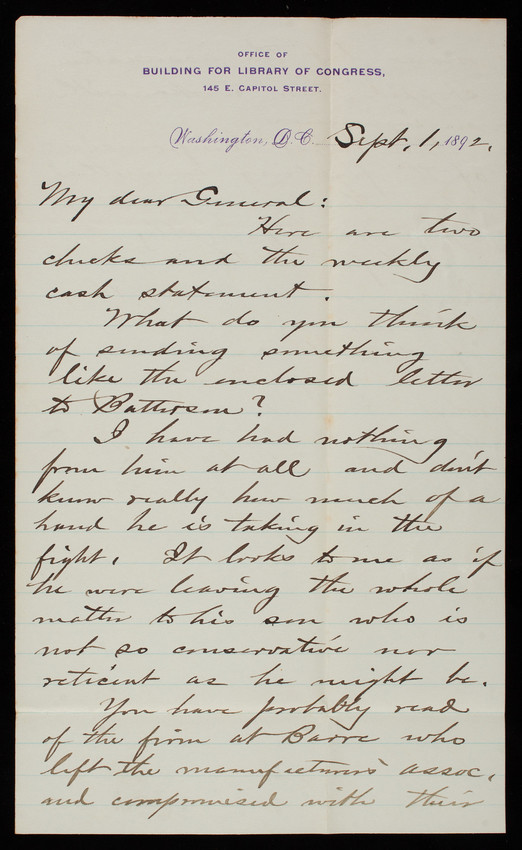 OFFICE OF
BUILDING FOR LIBRARY OF CONGRESS,
145 E. CAPITOL STREET.
Washington, D.C. Sept. 1, 1892.
My dear General:
Here are two
checks and the weekly
cash statement.
What do you think
of sending something
like the enclosed letter
to Batterson?
I have had nothing
from him at all and don't
know really how much of a
hand he is taking in the
fight. It looks to me as if
he were leaving the whole
matter to his son who is
not so conservative nor
reticent as he might be.
You have probably read
of the firm at Barre who
left the manufacturers' assoc.
and compromised with their